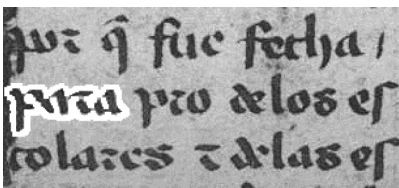 por q̃ fue fecha /
para pro delos es
colares ⁊ delas es